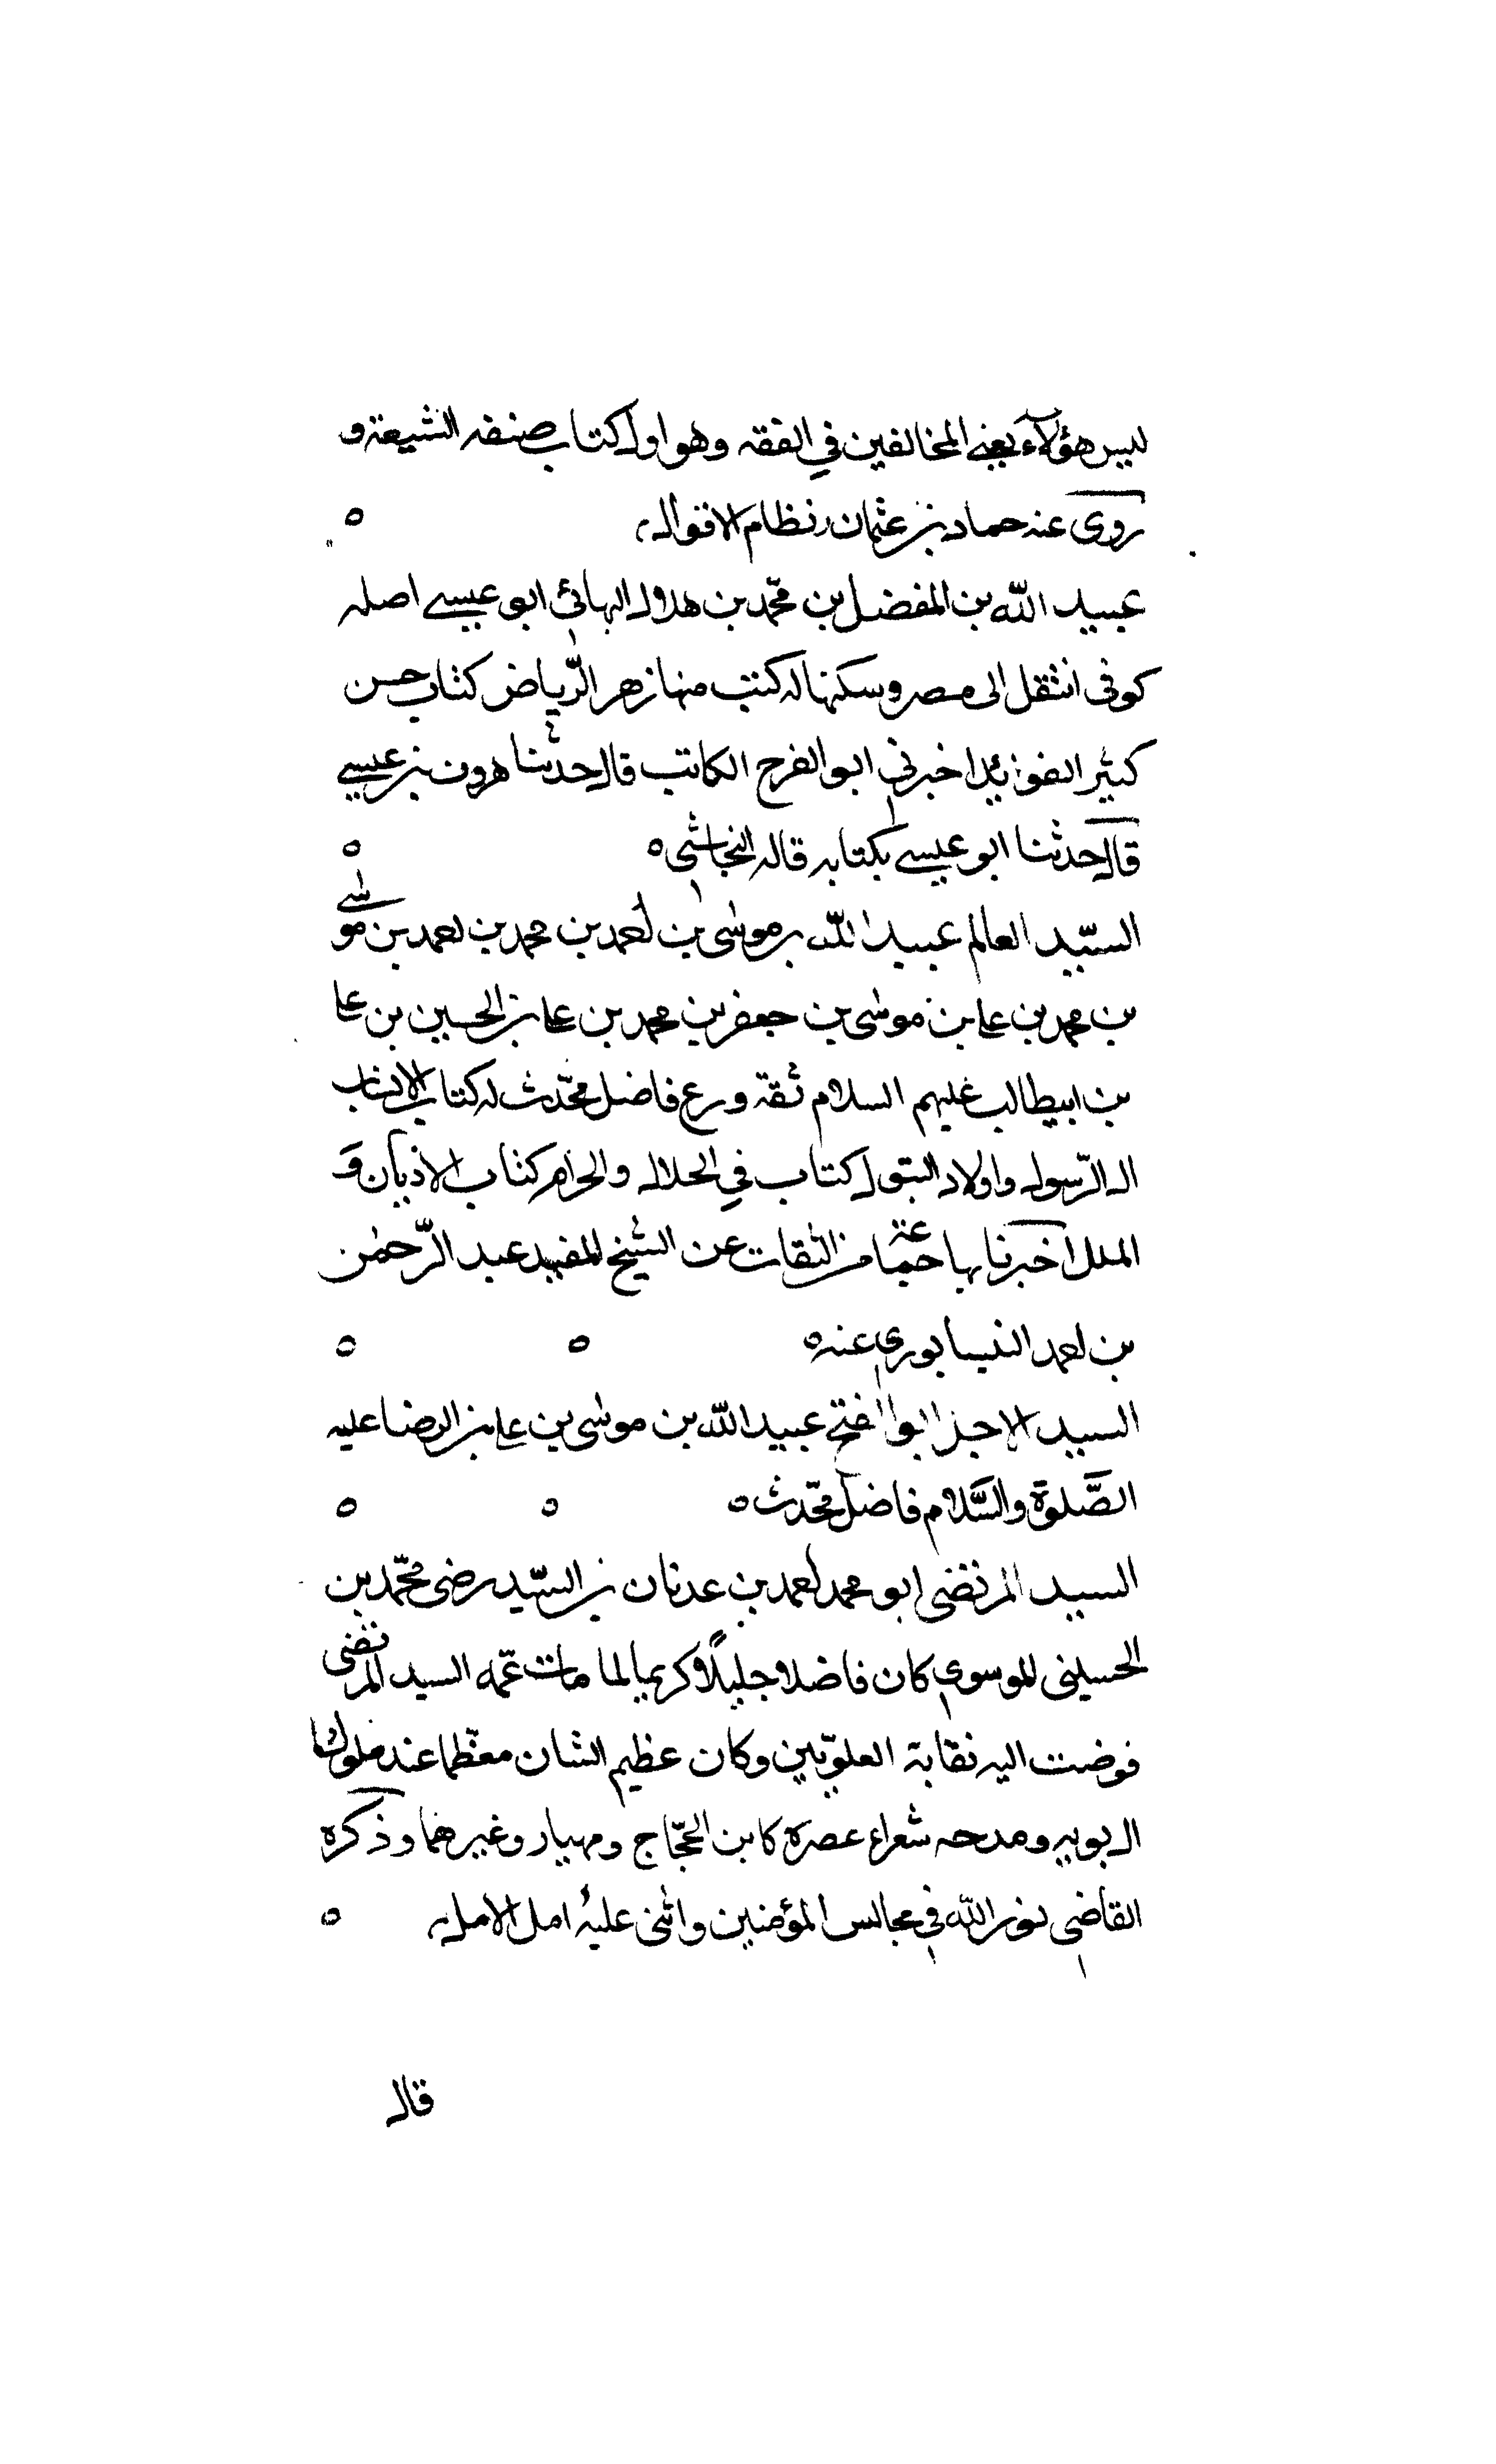 ليس هؤلآء يعني المخالفين في الفقه وهو اول كتاب صنفه الشيعة و
روى عنه حماد بن عثمان نظام الاقوال
عبيد الله بن المفضل بن محمّد بن هلال البهائي ابو عيسى اصله
كوفى انتقل الى مصر وسكنها له كتب منها زهر الرّياض كتاب حسن
كثير الفوائد اخبرني ابو الفرج الكاتب قال حدثنا هرون بن عيسى
قال حدثنا ابو عيسى بكتابه قاله النجاشى
السيّد العالم عبيد الله بن موسى بن احمد بن محمد بن احمد بن موسى
بن محمد بن على بن موسى بن جعفر بن محمد بن على بن الحسين بن على
بن ابيطالب عليهم السلام ثقة ورع فاضل محدّث له كتاب الانساب
ال الرّسول واولاد البتول كتاب في الحلال والحرام كتاب الاديان وَ
الملل اخبرنا بها جماعة من الثقات عن الشيخ المفيد عبد الرّحمن
بن احمد النيسابوري عنه
السيد الاجل ابو الفتح عبيد الله بن موسى بن على بن الرضا عليه
الصَّلوة والسَّلام فاضل محدّث
السيد المرتضى ابو محمد احمد بن عدنان بن السيّد رضى محمّد بن
الحسينى الموسوي كان فاضلا جليلًا كريما لما مات عمّه السيد المرتضى
فوضت اليه نقابة العلويّين وكان عظيم الشان معظّما عند ملوك
ال بويه ومدحه شعراء عصره كابن الحجّاج ومهيار وغيرهما وذكره
القاضى نور الله في مجالس المؤمنين واثنى عليه امل الامل
قال